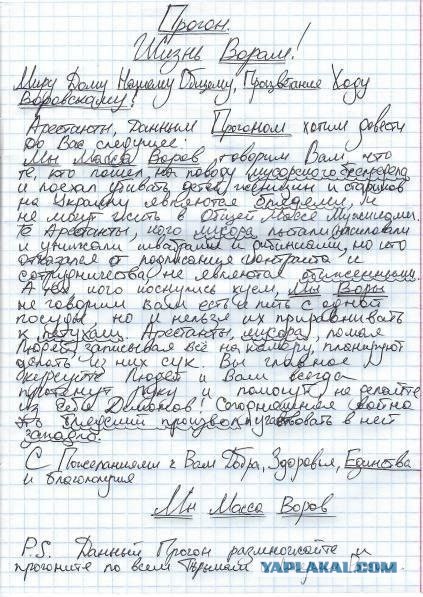 Прогон.
Жизнь Ворам!
Миру Дому Нашему Общему, Процветание Ходу
Воровскому!
Арестанты, данным Прогоном хотим довести
до Вас следущее:
Мы Масса Воров, говорим Вам, что
те, кто пошел на поводу мусорского беспредела
и поехал убивать детей, женщин и стариков
на Украину являются блядями, и
не могут жить в Общей Массе Мужиками.
Те Арестанты, кого мусора пытали, насиловали
и унижали швабрами и дилками, но кто
отказался от подписания контракта и
сотрудничества, не являются обиженными.
А тех кого коснулись хуем, Мы Воры
не говорим Вам есть и пить с одной
посуды, но и нельзя их приравнивать
к петухам. Арестанты, мусора, ломая
Людей, записывая всё на камеру, планируют
делать из них сук. Вы главное
Людей и Вам всегда
протянут руку и помогут, не делайте
из себя Демонов! Сегодняшняя война
блядский произвол, участвовать в ней
западло.
С Пожеланиями к Вам Добра, Здоровья, Единства
и благополучия
Мы Масса Воров
P.S. Данный Прогон размножайте и
прогоните по всем Тюрьмам
YAPLAKAL.COM